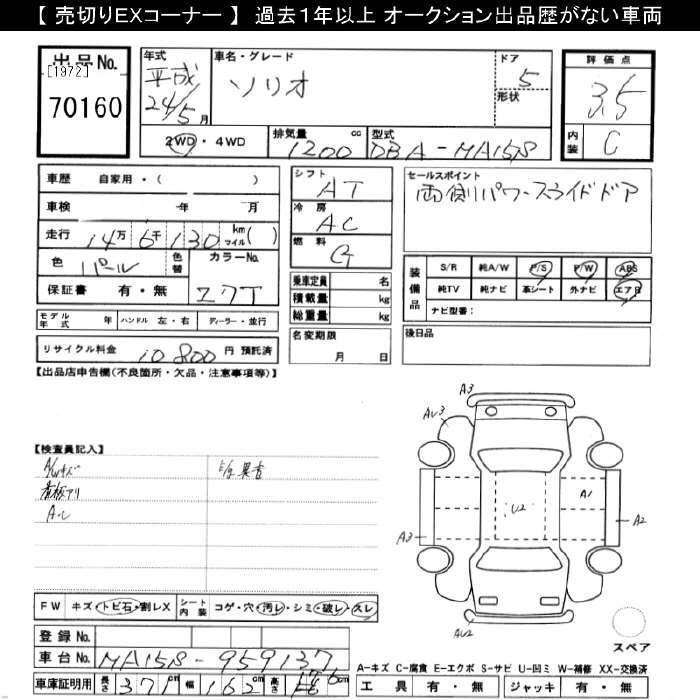 【 売切りEXコーナー 】 過去１年以上 オークション出品歴がない車両
出品No.
[1972]
70160
年式 平成24/5月
車名・グレード ソリオ
ドア 5
形状
評価点 3.5
内装 C
2WD・4WD
排気量 1200 cc
型式 DBA-MA15S
車歴 自家用・( )
車検 年 月
走行 14万6千130 km マイル( )
色 パール
色替
カラーNo. Z7T
保証書 有・無
シフト AT
冷房 AC
燃料 G
セールスポイント
両側パワースライドドア
乗車定員 名
積載量 kg
総重量 kg
装備品
S/R 純A/W P/S P/W ABS
純TV 純ナビ 革シート 外ナビ エアB
ナビ型番：
モデル年式 年 ハンドル 左・右 ディーラー・並行
名変期限 月 日
後日品
リサイクル料金 10800 円 預託済
【出品店申告欄(不良箇所・欠品・注意事項等)】
A3
AU3
【検査員記入】
A/Wキズ
看板アリ
U2
A1
A3
A2
AU2
FW キズ・トビ石・割レX
シート内装 コゲ・穴・汚レ・シミ・破レ・スレ
スペア
登録No.
車台No. MA15S-959137
車庫証明用 長さ 371cm 幅 162cm 高さ
A-キズ C-腐食 E-エクボ S-サビ U-凹ミ W-補修 XX-交換済
工具 有・無 ジャッキ 有・無